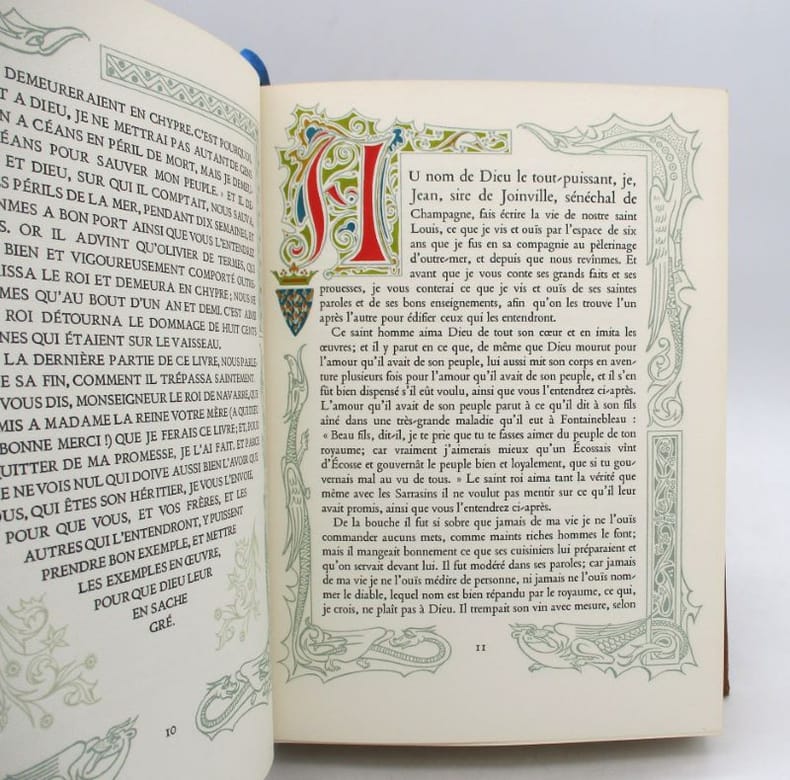 DEMEURERAIENT EN CHYPRE. C'EST POURQUOI,
T A DIEU, JE NE METTRAI PAS AUTANT DE GENS
N A CÉANS EN PÉRIL DE MORT, MAIS JE DEMEU-
ÉANS POUR SAUVER MON PEUPLE. » ET IL DE-
ET DIEU, SUR QUI IL COMPTAIT, NOUS SAUVA,
S PÉRILS DE LA MER, PENDANT DIX SEMAINES, ET
NMES A BON PORT AINSI QUE VOUS L'ENTENDREZ
S. OR IL ADVINT QU'OLIVIER DE TERMES, QUI
BIEN ET VIGOUREUSEMENT COMPORTÉ OUTRE-
ISSA LE ROI ET DEMEURA EN CHYPRE; NOUS NE
MES QU'AU BOUT D'UN AN ET DEMI. C'EST AINSI
ROI DÉTOURNA LE DOMMAGE DE HUIT CENTS
NES QUI ÉTAIENT SUR LE VAISSEAU.
LA DERNIÈRE PARTIE DE CE LIVRE, NOUS PARLE-
E SA FIN, COMMENT IL TRÉPASSA SAINTEMENT.
VOUS DIS, MONSEIGNEUR LE ROI DE NAVARRE, QUE
MIS A MADAME LA REINE VOTRE MÈRE (A QUI DIEU
BONNE MERCI!) QUE JE FERAIS CE LIVRE; ET, POUR
UITTER DE MA PROMESSE, JE L'AI FAIT. ET PARCE
E NE VOIS NUL QUI DOIVE AUSSI BIEN L'AVOIR QUE
OUS, QUI ÊTES SON HÉRITIER, JE VOUS L'ENVOIE,
POUR QUE VOUS, ET VOS FRÈRES, ET LES
AUTRES QUI L'ENTENDRONT, Y PUISSENT
PRENDRE BON EXEMPLE, ET METTRE
LES EXEMPLES EN ŒUVRE,
POUR QUE DIEU LEUR
EN SACHE
GRÉ.
10
AU nom de Dieu le tout-puissant, je,
Jean, sire de Joinville, sénéchal de
Champagne, fais écrire la vie de nostre saint
Louis, ce que je vis et ouïs par l'espace de six
ans que je fus en sa compagnie au pèlerinage
d'outre-mer, et depuis que nous revînmes. Et
avant que je vous conte ses grands faits et ses
prouesses, je vous conterai ce que je vis et ouïs de ses saintes
paroles et de ses bons enseignements, afin qu'on les trouve l'un
après l'autre pour édifier ceux qui les entendront.
Ce saint homme aima Dieu de tout son cœur et en imita les
œuvres; et il y parut en ce que, de même que Dieu mourut pour
l'amour qu'il avait de son peuple, lui aussi mit son corps en aven-
ture plusieurs fois pour l'amour qu'il avait de son peuple, et il s'en
fût bien dispensé s'il eût voulu, ainsi que vous l'entendrez ci-après.
L'amour qu'il avait de son peuple parut à ce qu'il dit à son fils
aîné dans une très-grande maladie qu'il eut à Fontainebleau :
« Beau fils, dit-il, je te prie que tu te fasses aimer du peuple de ton
royaume; car vraiment j'aimerais mieux qu'un Écossais vînt
d'Écosse et gouvernât le peuple bien et loyalement, que si tu gou-
vernais mal au vu de tous. » Le saint roi aima tant la vérité que
même avec les Sarrasins il ne voulut pas mentir sur ce qu'il leur
avait promis, ainsi que vous l'entendrez ci-après.
De la bouche il fut si sobre que jamais de ma vie je ne l'ouïs
commander aucuns mets, comme maints riches hommes le font;
mais il mangeait bonnement ce que ses cuisiniers lui préparaient et
qu'on servait devant lui. Il fut modéré dans ses paroles; car jamais
de ma vie je ne l'ouïs médire de personne, ni jamais ne l'ouïs nom-
mer le diable, lequel nom est bien répandu par le royaume, ce qui,
je crois, ne plaît pas à Dieu. Il trempait son vin avec mesure, selon
11